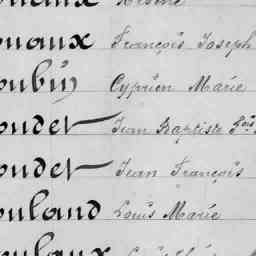 ouaux François Joseph
oubin Cyprien Marie
oudet Jean Baptiste Louis
oudet Jean François
ouland Louis Marie